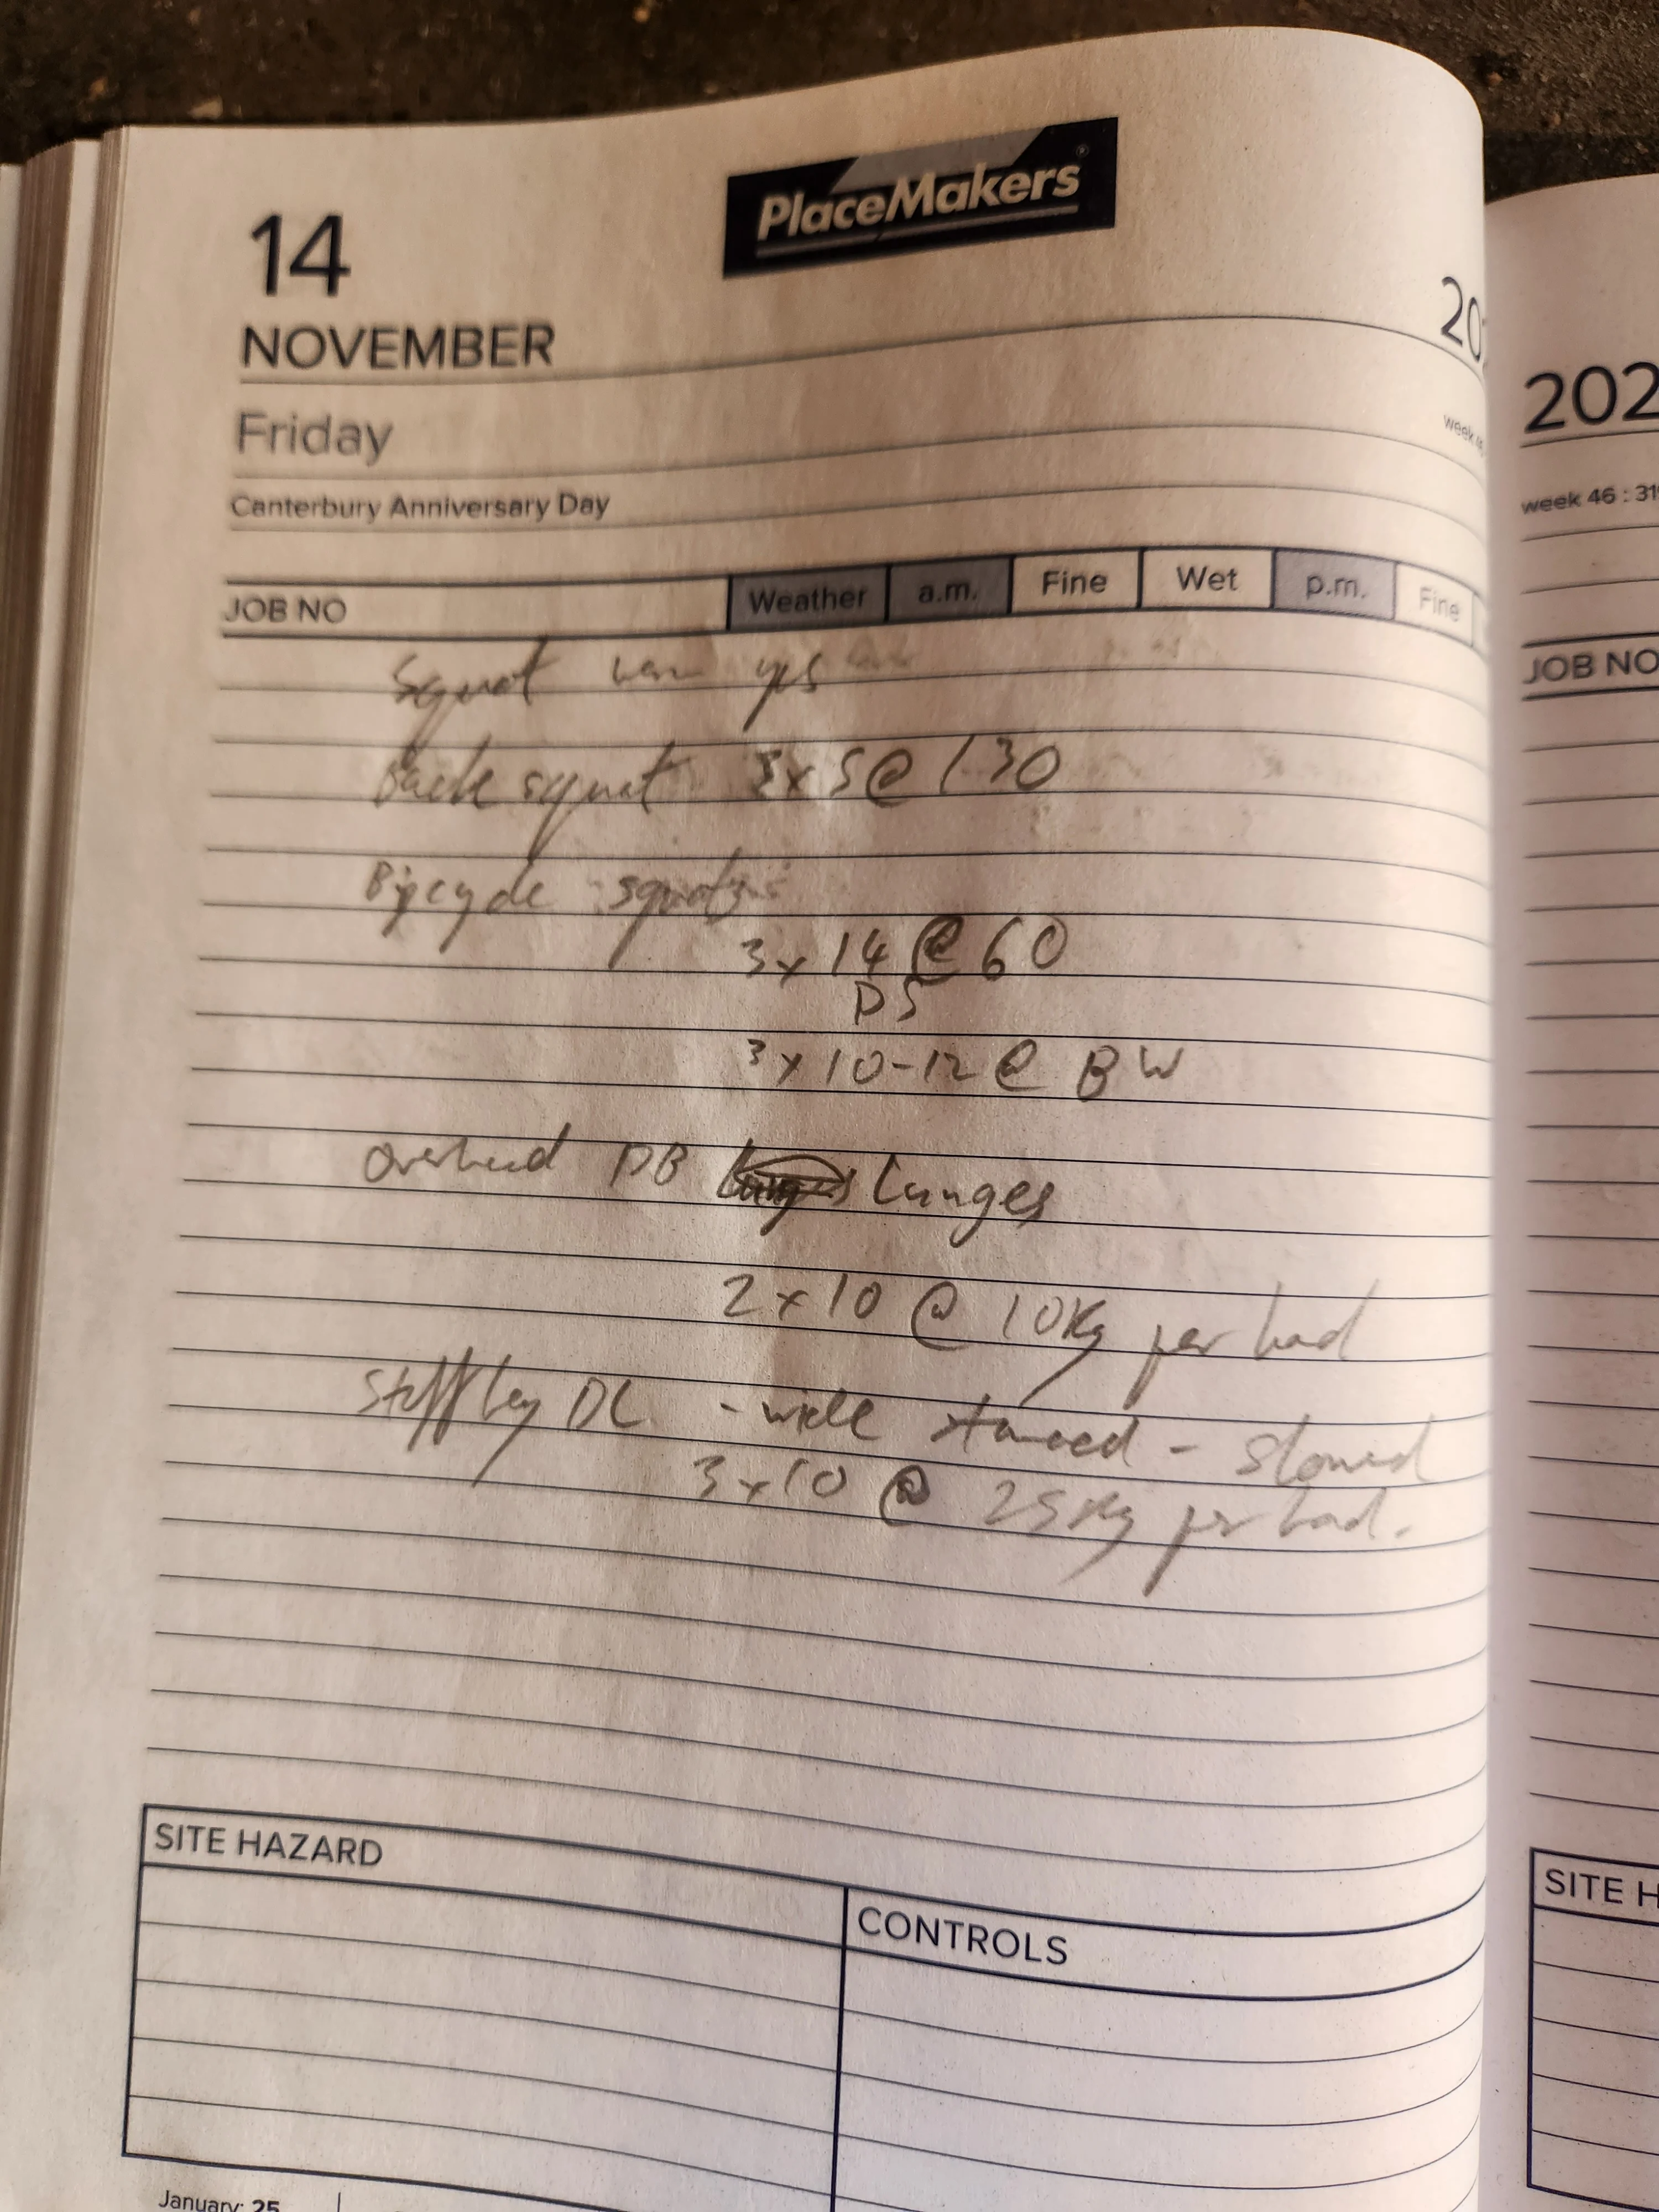 PlaceMakers®
14
NOVEMBER
20
Friday
week 46
Canterbury Anniversary Day
JOB NO Weather a.m. Fine Wet p.m. Fine
Squat warm yes
Back squat 3x5@130
squats
3x14@60
DS
3x10-12@BW
Overhead DB Lunges
2x10 @ 10Kg per hand
Stiff leg DL - wide stanced - slowed
3x10 @ 25Kg per hand.
SITE HAZARD
CONTROLS
January: 25
202
week 46 : 31
JOB NO
SITE H